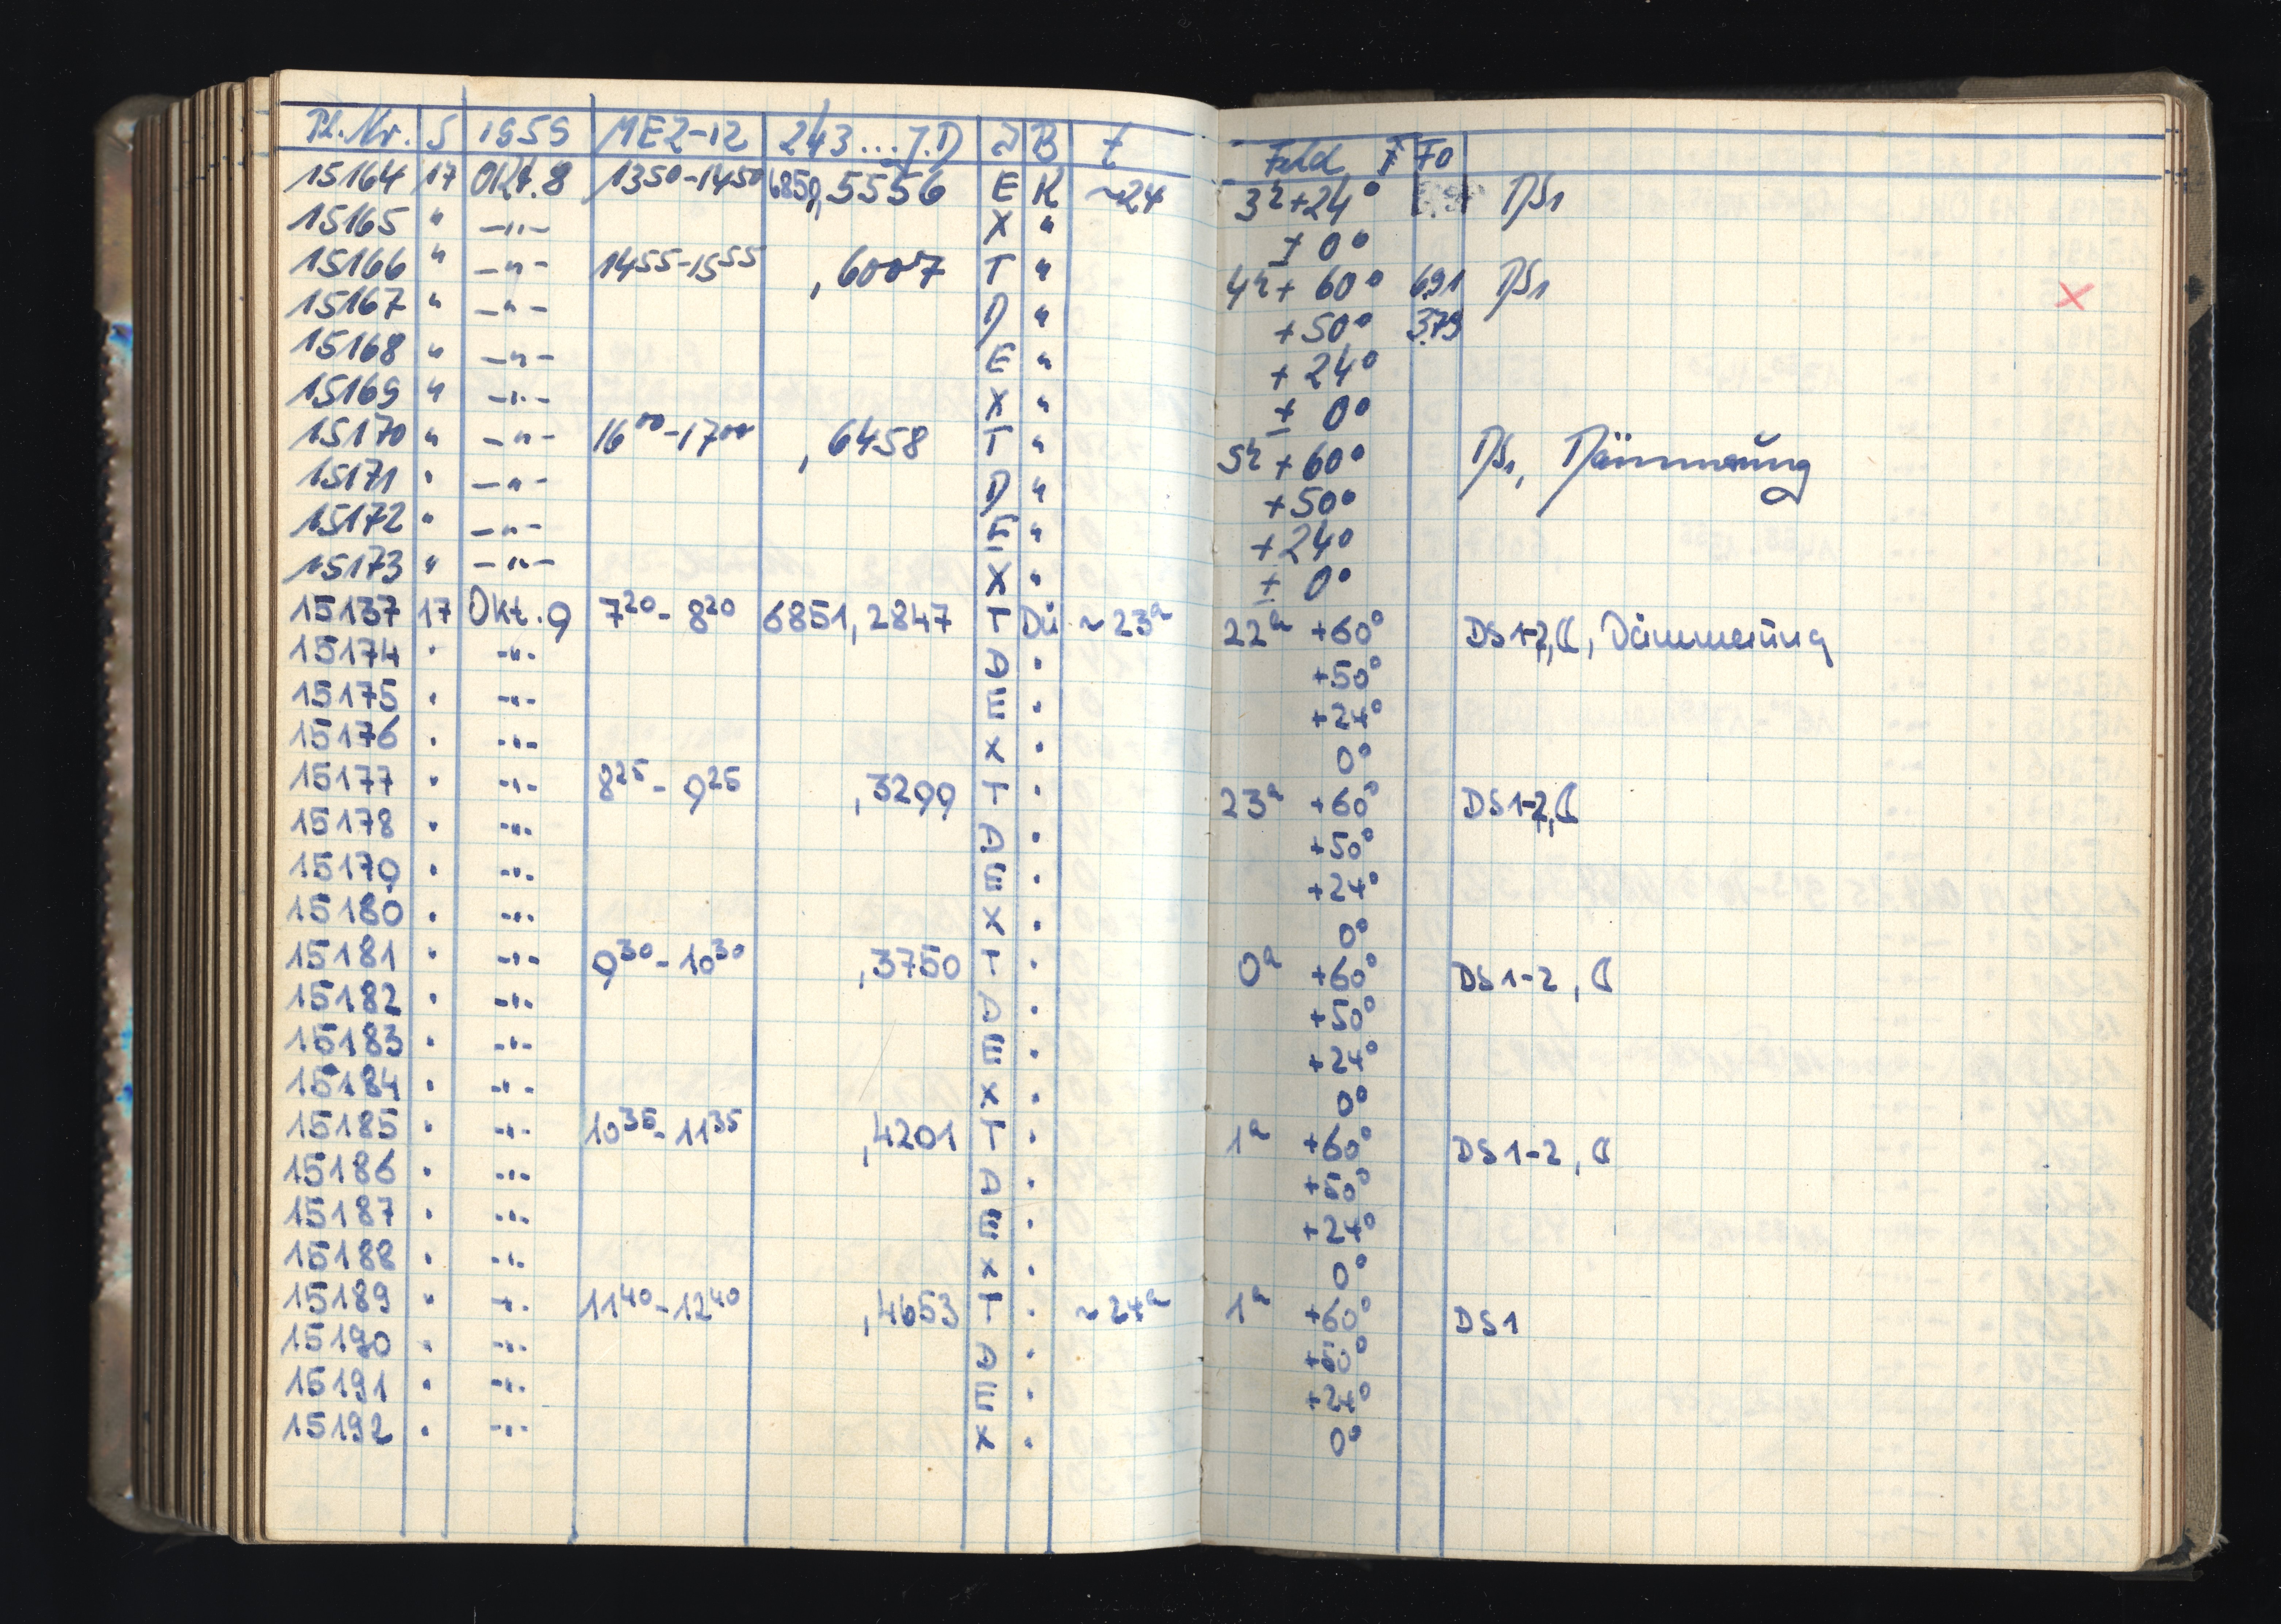 Pl. Nr. S 1959 MEZ-12 243...J.D I B t Feld F Fo
15164 17 Okt. 8 13⁵⁰-14⁵⁰ 6850,5556 E K ~24 3ʰ+24° DS1
15165 " -"- X " ± 0°
15166 " -"- 14⁵⁵-15⁵⁵ ,6007 T " 4ʰ+ 60° 691 DS1 X
15167 " -"- D " +50° 379
15168 " -"- E " + 24°
15169 " -"- X " ± 0°
15170 " -"- 16⁰⁰-17⁰⁰ ,6458 T " 5ʰ+60° DS1, Dämmerung
15171 " -"- D " +50°
15172 " -"- E " +24°
15173 " -"- X " ± 0°
15137 17 Okt. 9 7²⁰-8²⁰ 6851,2847 T Dü ~23ʰ 22ʰ +60° DS1-2,☾, Dämmerung
15174 " -"- D " +50°
15175 " -"- E " +24°
15176 " -"- X " 0°
15177 " -"- 8²⁵-9²⁵ ,3299 T " 23ʰ +60° DS1-2,☾
15178 " -"- D " +50°
15179 " -"- E " +24°
15180 " -"- X " 0°
15181 " -"- 9³⁰-10³⁰ ,3750 T " 0ʰ +60° DS1-2, ☾
15182 " -"- D " +50°
15183 " -"- E " +24°
15184 " -"- X " 0°
15185 " -"- 10³⁵-11³⁵ ,4201 T " 1ʰ +60° DS1-2, ☾
15186 " -"- D " +50°
15187 " -"- E " +24°
15188 " -"- X " 0°
15189 " -"- 11⁴⁰-12⁴⁰ ,4653 T " ~24ʰ 1ʰ +60° DS1
15190 " -"- D " +50°
15191 " -"- E " +24°
15192 " -"- X " 0°